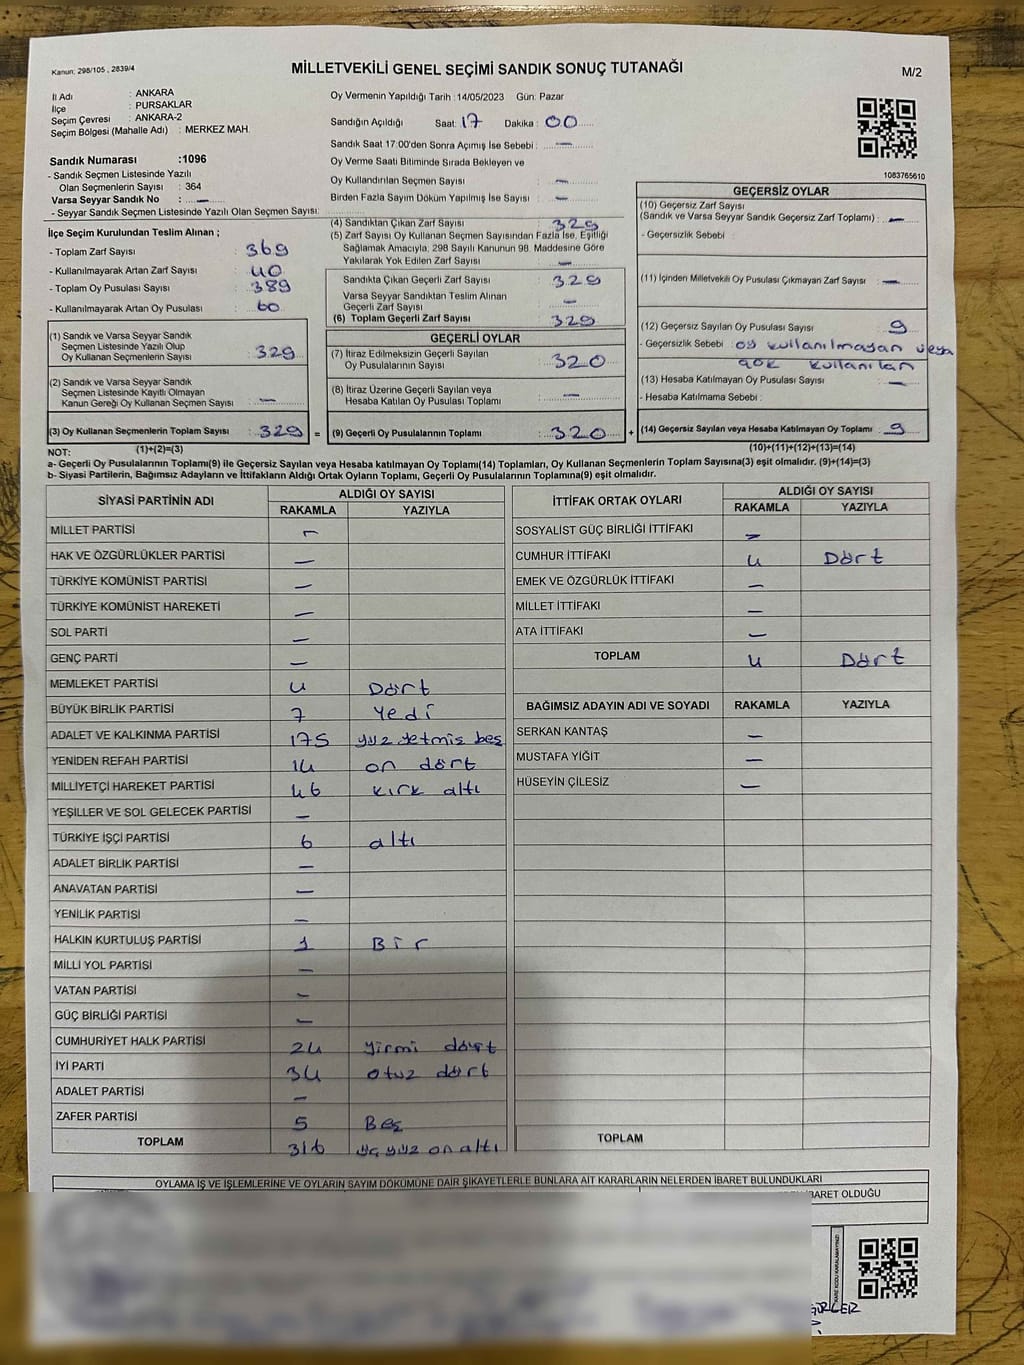 Kanun: 298/105 , 2839/4
MİLLETVEKİLİ GENEL SEÇİMİ SANDIK SONUÇ TUTANAĞI
M/2
İl Adı : ANKARA
İlçe : PURSAKLAR
Seçim Çevresi : ANKARA-2
Seçim Bölgesi (Mahalle Adı) : MERKEZ MAH.
Sandık Numarası :1096
- Sandık Seçmen Listesinde Yazılı
Olan Seçmenlerin Sayısı : 364
Varsa Seyyar Sandık No : —
- Seyyar Sandık Seçmen Listesinde Yazılı Olan Seçmen Sayısı:
İlçe Seçim Kurulundan Teslim Alınan ;
- Toplam Zarf Sayısı : 369
- Kullanılmayarak Artan Zarf Sayısı : 40
- Toplam Oy Pusulası Sayısı : 389
- Kullanılmayarak Artan Oy Pusulası : 60
(1) Sandık ve Varsa Seyyar Sandık
Seçmen Listesinde Yazılı Olup
Oy Kullanan Seçmenlerin Sayısı : 329
(2) Sandık ve Varsa Seyyar Sandık
Seçmen Listesinde Kayıtlı Olmayan
Kanun Gereği Oy Kullanan Seçmen Sayısı : —
(3) Oy Kullanan Seçmenlerin Toplam Sayısı : 329 =
(1)+(2)=(3)
Oy Vermenin Yapıldığı Tarih : 14/05/2023 Gün: Pazar
Sandığın Açıldığı Saat: 17 Dakika : 00
Sandık Saat 17:00'den Sonra Açımış İse Sebebi : —
Oy Verme Saati Bitiminde Sırada Bekleyen ve
Oy Kullandırılan Seçmen Sayısı : —
Birden Fazla Sayım Döküm Yapılmış İse Sayısı : —
(4) Sandıktan Çıkan Zarf Sayısı : 329
(5) Zarf Sayısı Oy Kullanan Seçmen Sayısından Fazla İse, Eşitliği
Sağlamak Amacıyla, 298 Sayılı Kanunun 98. Maddesine Göre
Yakılarak Yok Edilen Zarf Sayısı : —
Sandıkta Çıkan Geçerli Zarf Sayısı : 329
Varsa Seyyar Sandıktan Teslim Alınan
Geçerli Zarf Sayısı : —
(6) Toplam Geçerli Zarf Sayısı : 329
GEÇERLİ OYLAR
(7) İtiraz Edilmeksizin Geçerli Sayılan
Oy Pusulasının Sayısı : 320
(8) İtiraz Üzerine Geçerli Sayılan veya
Hesaba Katılan Oy Pusulası Toplamı : —
(9) Geçerli Oy Pusulalarının Toplamı : 320 +
1083765610
GEÇERSİZ OYLAR
(10) Geçersiz Zarf Sayısı
(Sandık ve Varsa Seyyar Sandık Geçersiz Zarf Toplamı) : —
- Geçersizlik Sebebi :
(11) İçinden Milletvekili Oy Pusulası Çıkmayan Zarf Sayısı : —
(12) Geçersiz Sayılan Oy Pusulası Sayısı : 9
- Geçersizlik Sebebi : oy kullanılmayan veya
çok kullanılan
(13) Hesaba Katılmayan Oy Pusulası Sayısı : —
- Hesaba Katılmama Sebebi :
(14) Geçersiz Sayılan veya Hesaba Katılmayan Oy Toplamı : 9
(10)+(11)+(12)+(13)=(14)
NOT:
a- Geçerli Oy Pusulalarının Toplamı(9) ile Geçersiz Sayılan veya Hesaba katılmayan Oy Toplamı(14) Toplamları, Oy Kullanan Seçmenlerin Toplam Sayısına(3) eşit olmalıdır. (9)+(14)=(3)
b- Siyasi Partilerin, Bağımsız Adayların ve İttifakların Aldığı Ortak Oyların Toplamı, Geçerli Oy Pusulalarının Toplamına(9) eşit olmalıdır.
SİYASİ PARTİNİN ADI ALDIĞI OY SAYISI
RAKAMLA YAZIYLA
MİLLET PARTİSİ —
HAK VE ÖZGÜRLÜKLER PARTİSİ —
TÜRKİYE KOMÜNİST PARTİSİ —
TÜRKİYE KOMÜNİST HAREKETİ —
SOL PARTİ —
GENÇ PARTİ —
MEMLEKET PARTİSİ 4 Dört
BÜYÜK BİRLİK PARTİSİ 7 Yedi
ADALET VE KALKINMA PARTİSİ 175 yüz yetmiş beş
YENİDEN REFAH PARTİSİ 14 on dört
MİLLİYETÇİ HAREKET PARTİSİ 46 kırk altı
YEŞİLLER VE SOL GELECEK PARTİSİ —
TÜRKİYE İŞÇİ PARTİSİ 6 altı
ADALET BİRLİK PARTİSİ —
ANAVATAN PARTİSİ —
YENİLİK PARTİSİ —
HALKIN KURTULUŞ PARTİSİ 1 Bir
MİLLİ YOL PARTİSİ —
VATAN PARTİSİ —
GÜÇ BİRLİĞİ PARTİSİ —
CUMHURİYET HALK PARTİSİ 24 yirmi dört
İYİ PARTİ 34 otuz dört
ADALET PARTİSİ —
ZAFER PARTİSİ 5 Beş
TOPLAM 316 üç yüz on altı
İTTİFAK ORTAK OYLARI ALDIĞI OY SAYISI
RAKAMLA YAZIYLA
SOSYALİST GÜÇ BİRLİĞİ İTTİFAKI —
CUMHUR İTTİFAKI 4 Dört
EMEK VE ÖZGÜRLÜK İTTİFAKI —
MİLLET İTTİFAKI —
ATA İTTİFAKI —
TOPLAM 4 Dört
BAĞIMSIZ ADAYIN ADI VE SOYADI RAKAMLA YAZIYLA
SERKAN KANTAŞ —
MUSTAFA YİĞİT —
HÜSEYİN ÇİLESİZ —
TOPLAM
OYLAMA İŞ VE İŞLEMLERİNE VE OYLARIN SAYIM DÖKÜMÜNE DAİR ŞİKAYETLERLE BUNLARA AİT KARARLARIN NELERDEN İBARET BULUNDUKLARI
İBARET OLDUĞU
KARE KODU KARALAMAYINIZ!